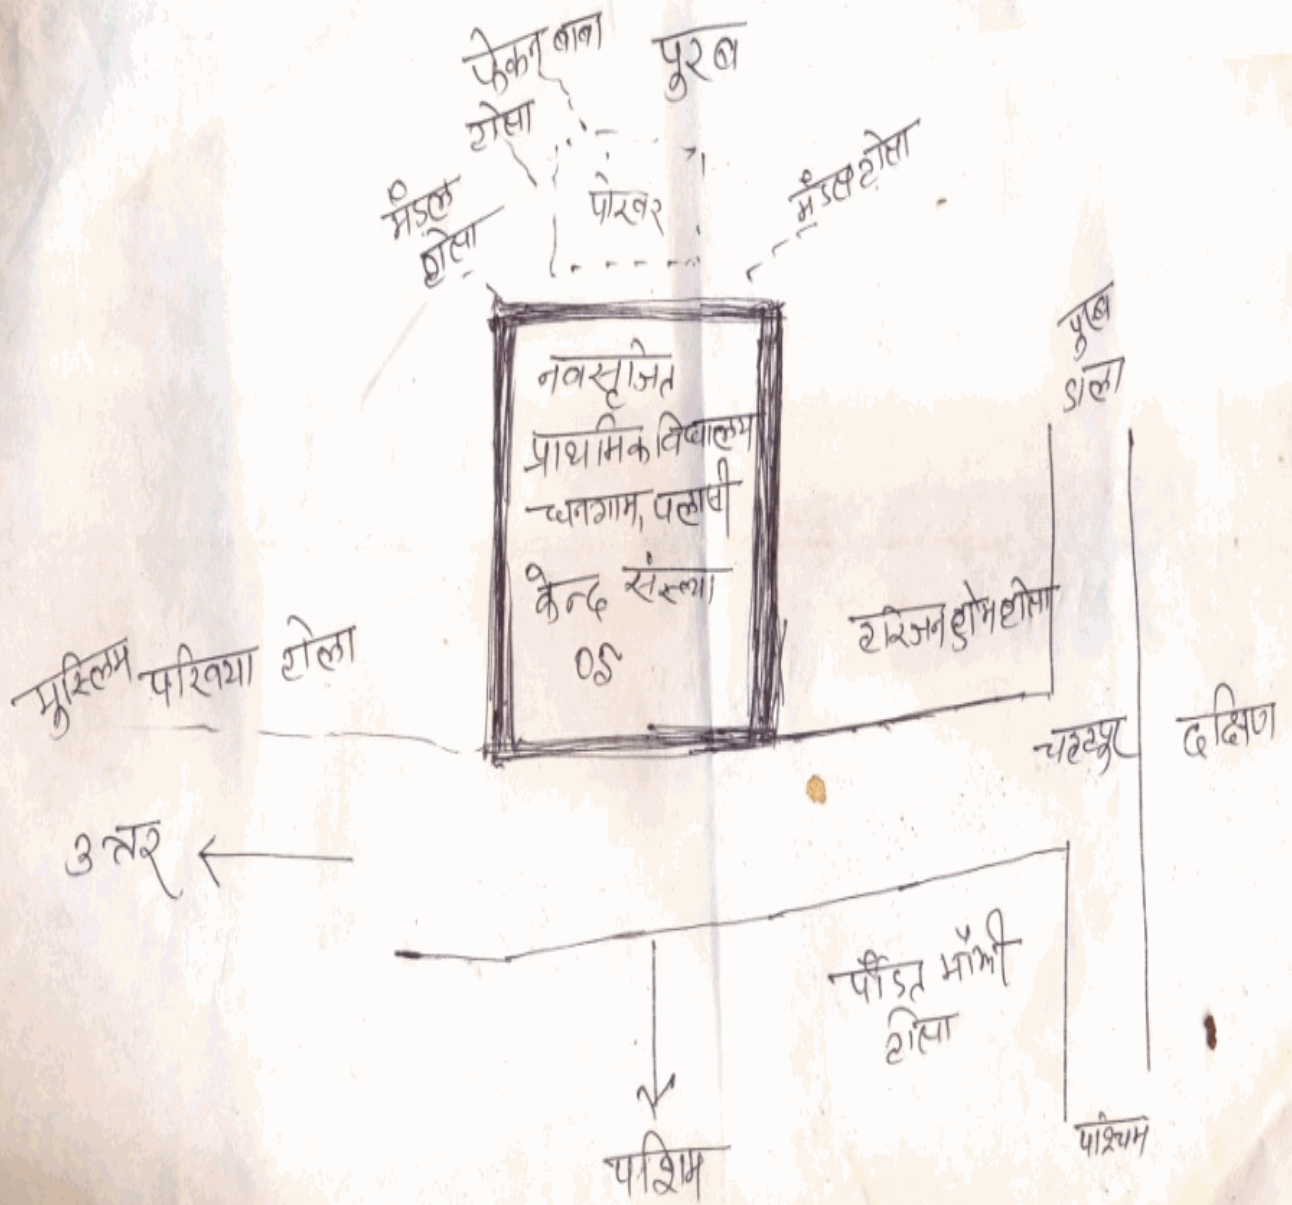 फेकन बाबा
टोला
पुरब
मंडल
टोला
पोखर
मंडल टोला
नवसृजित
प्राथमिक विद्यालय
धनगाम, पलासी
केन्द्र संख्या
05
पुरब
टोला
हरिजन डोम टोला
मुस्लिम पखिया टोला
दक्षिण
उत्तर
पंडित माँझी
टोला
पश्चिम
पशिम